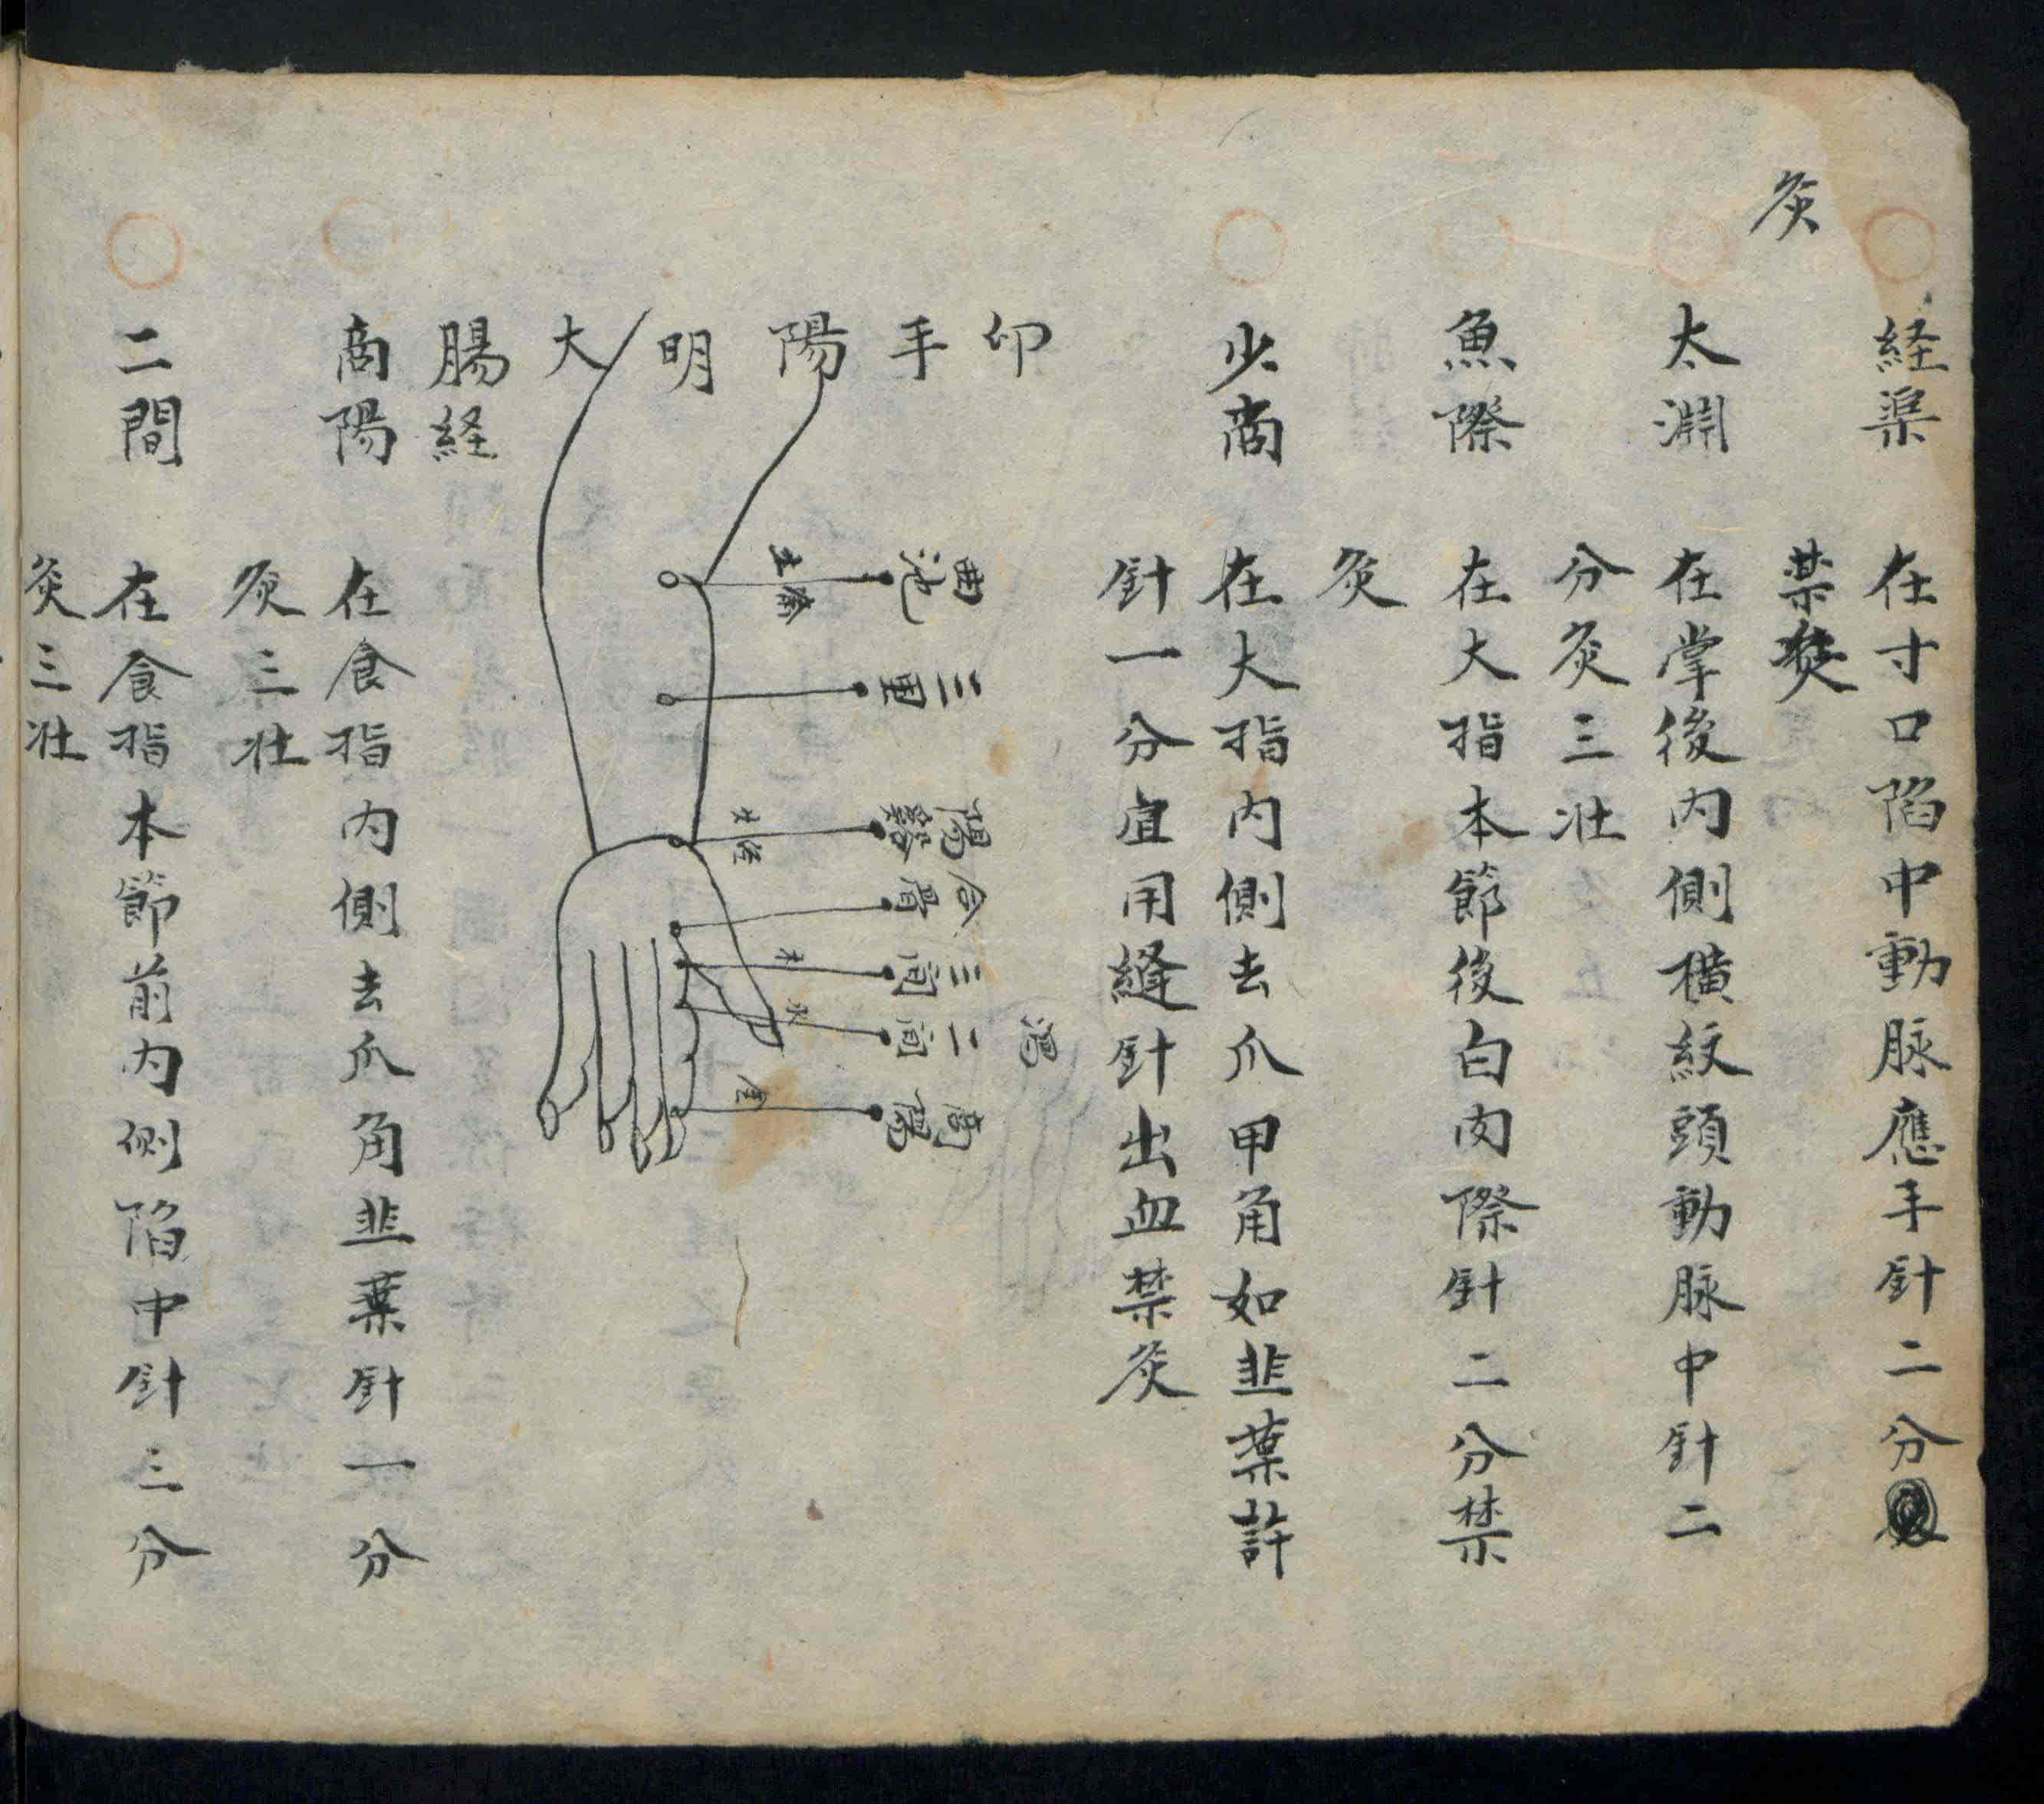 経渠　在寸口陷中動脉應手針二分
禁
灸
太淵　在掌後内側横紋頭動脉中針二
分灸三壯
魚際　在大指本節後白肉際針二分禁
灸
少商　在大指内側去爪甲角如韭葉許
針一分宜用縫針出血禁灸
仰手陽明大
腸経
曲池
土
三里
陽谿
火
経
合骨
三間
木
二間
水
商陽
金
商陽　在食指内側去爪角韭葉針一分
灸三壯
二間　在食指本節前内側陷中針三分
灸三壯